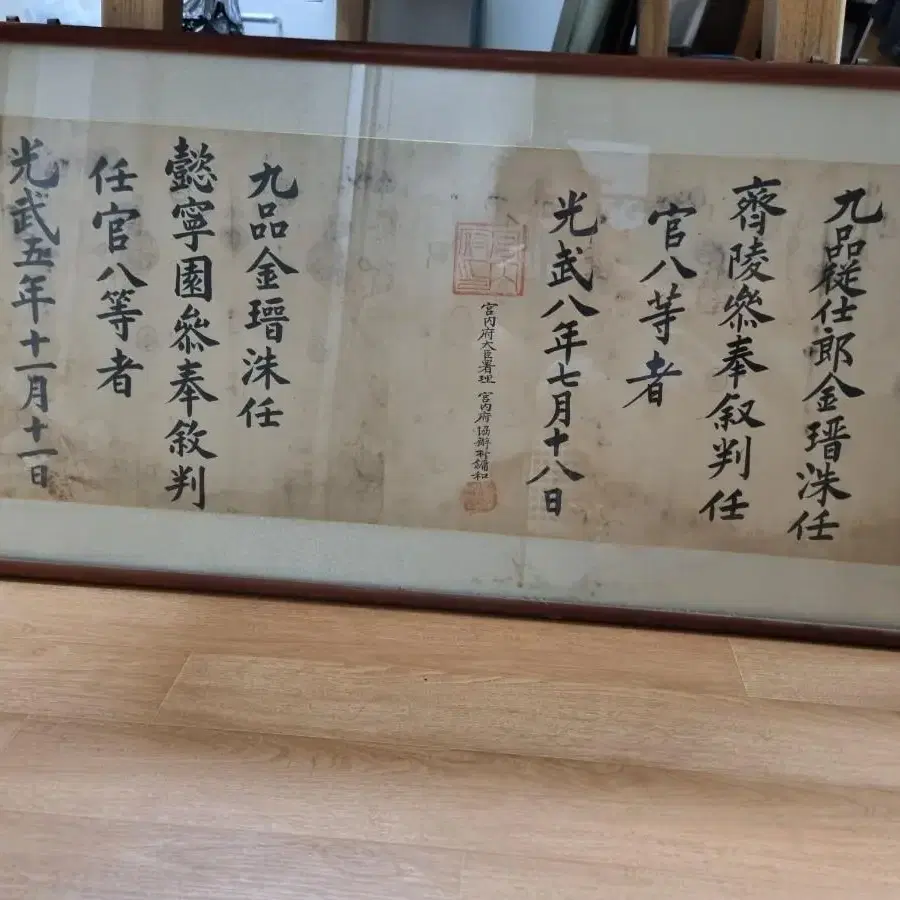 九品從仕郎金瑨洙任
齊陵參奉叙判任
官八等者
光武八年七月十八日
宮內府大臣署理 宮內府協辦朴鏞和
九品金瑨洙任
懿寧園參奉敘判
任官八等者
光武五年十一月十一日